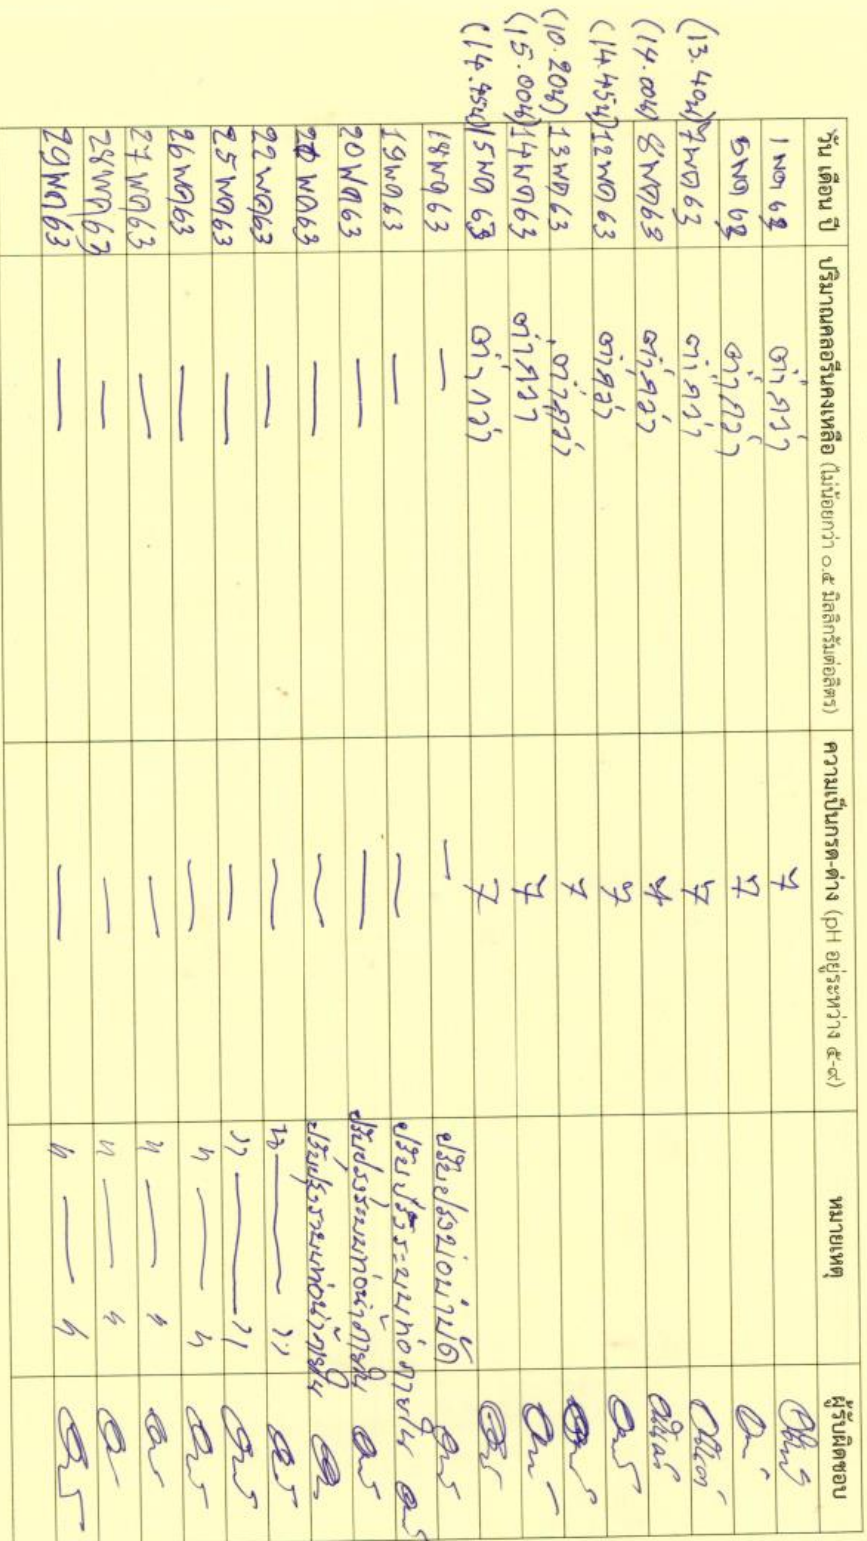 วัน เดือน ปี ปริมาณคลอรีนคงเหลือ (ไม่น้อยกว่า ๐.๕ มิลลิกรัมต่อลิตร) ความเป็นกรด-ด่าง (pH อยู่ระหว่าง ๕-๙) หมายเหตุ ผู้รับผิดชอบ
1 พค 63 ต่ำกว่า 7
5 พค 63 ต่ำกว่า 7
(13.40น) 7 พค 63 ต่ำกว่า 7
(14.00น) 8 พค 63 ต่ำกว่า 7
(14.45น) 12 พค 63 ต่ำกว่า 7
(10.20น) 13 พค 63 ต่ำกว่า 7
(15.00น) 14 พค 63 ต่ำกว่า 7
(14.45น) 15 พค 63 ต่ำกว่า 7
18 พค 63 — — ปรับปรุงบ่อบำบัด
19 พค 63 — — ปรับปรุงระบบท่อภายใน
20 พค 63 — — ปรับปรุงระบบท่อน้ำภายใน
21 พค 63 — — ปรับปรุงระบบท่อน้ำภายใน
22 พค 63 — — " — "
25 พค 63 — — " — "
26 พค 63 — — " — "
27 พค 63 — — " — "
28 พค 63 — — " — "
29 พค 63 — — " — "